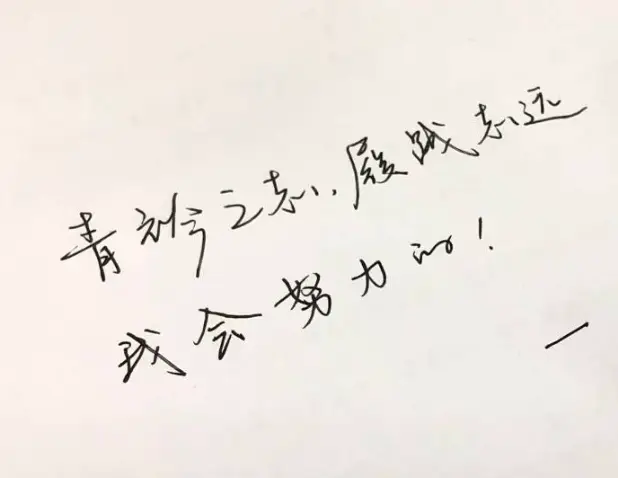 青衿之志,履践志远
我会努力的!